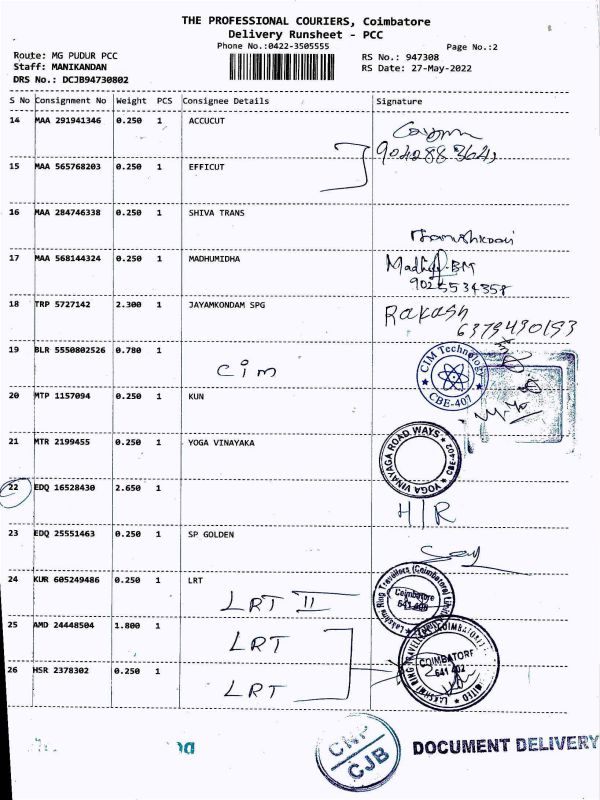 THE PROFESSIONAL COURIERS, Coimbatore
Delivery Runsheet - PCC
Phone No.:0422-3505555
Page No.:2
Route: MG PUDUR PCC
RS No.: 947308
Staff: MANIKANDAN
RS Date: 27-May-2022
DRS No.: DCJB94730802
S No Consignment No Weight PCS Consignee Details Signature
14 MAA 291941346 0.250 1 ACCUCUT
15 MAA 565768203 0.250 1 EFFICUT
16 MAA 284746338 0.250 1 SHIVA TRANS
17 MAA 568144324 0.250 1 MADHUMIDHA
9025534358
18 TRP 5727142 2.300 1 JAYAMKONDAM SPG Rakash
6379490193
19 BLR 5550802526 0.780 1
Cim
CIM Technology
CBE-407
20 MTP 1157094 0.250 1 KUN
21 MTR 2199455 0.250 1 YOGA VINAYAKA
YOGA VINAYAGA ROAD WAYS
22 EDQ 16528430 2.650 1
H/R
23 EDQ 25551463 0.250 1 SP GOLDEN
24 KUR 605249486 0.250 1 LRT
LRT II
Coimbatore
25 AMD 24448504 1.800 1
LRT
COIMBATORE
641 402
26 HSR 2378302 0.250 1
LRT
CNP
CJB
DOCUMENT DELIVERY